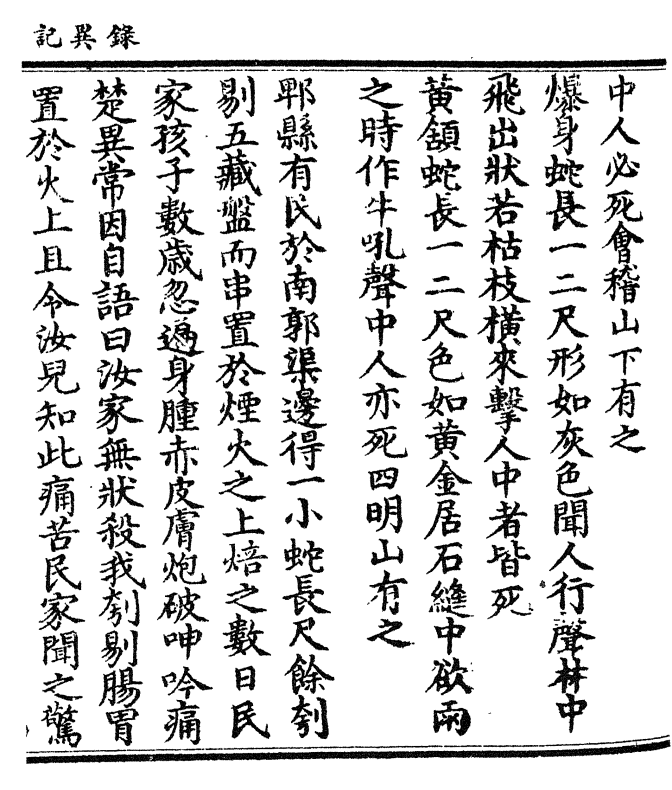 錄異記
中人必死會稽山下有之
爆身蛇長一二尺形如灰色聞人行聲林中
飛出狀若枯枝橫來擊人中者皆死
黃頷蛇長一二尺色如黃金居石縫中欲雨
之時作牛吼聲中人亦死四明山有之
郫縣有民於南郭渠邊得一小蛇長尺餘刳
剔五藏盤而串置於煙火之上焙之數日民
家孩子數歲忽遍身腫赤皮膚炮破呻吟痛
楚異常因自語曰汝家無狀殺我刳剔腸胃
置於火上且令汝兒知此痛苦民家聞之驚